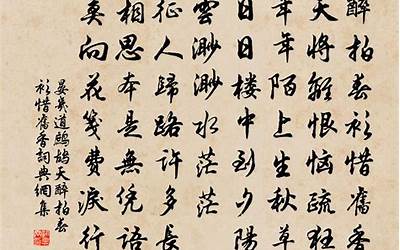 醉拍春衫惜舊香
天將離恨惱疏狂
年年陌上生秋草
日日樓中到夕陽
雲渺渺水茫茫
征人歸路許多長
相思本是無凭語
莫向花箋費淚行
晏幾道鷓鴣天醉拍春
衫惜舊香詞典網集